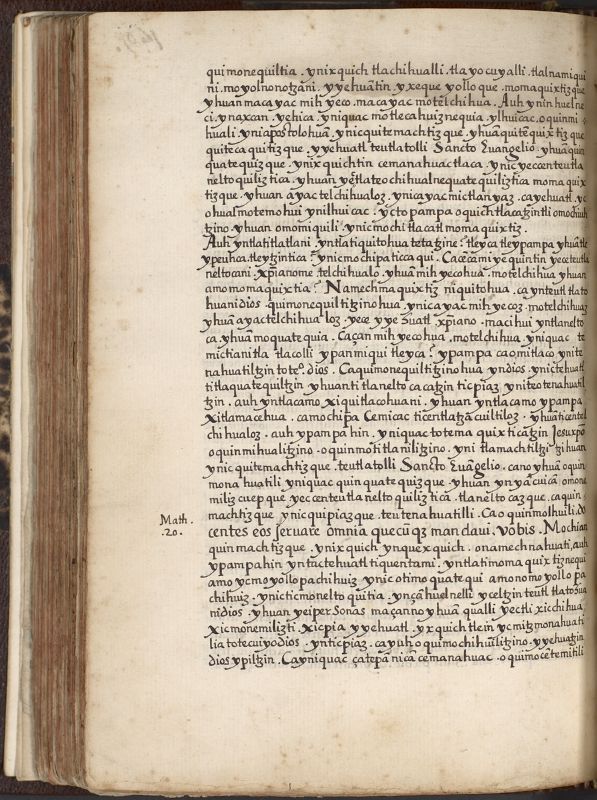 quimonequiltia . ynixquich tlachihualli . tlayocuyalli . tlalnamiqui
ni . moyolnonotzani . yyehuãtin . yxeque yolloque . momaquixtizque
yhuan macayac mih yeco . macayac motelchihua . Auh ynin huel ne
ci . ynaxcan . yehica . yniquac motlecahuiznequia . ylhuicac . oquinmi
huali . yniapostolohuã . ynicquitemachtizque . yhuã quitẽquixtizque
quitecaquitizque . yyehuatl teutlatolli Sancto Euangelio . yhuã quin
quatequizque . ynixquichtin cemanahuac tlaca . ynic yeccenteutla
neltoquiliztica . yhuan yẽtlateochihualnequatequiliztica momaquix
tizque . yhuan ayac telchihualoz . ynicayac mictlan yaz . ca yehuatl . yc
ohualmotemohui ynilhuicac : yc topampa oquichtlacatzintli omochiuh
tzino . yhuan omomiquili . ynic mochi tlacatl momaquixtiz .
Auh yntlatitlatlani . yntlatiquitohua tetatzine : tleyca tleypampa yhuãtle
ypeuhca . tleytzintica : ynicmochipa ticca qui . Ca cẽcami yequintin yecteutla
neltocani . xp̃ianome . telchihualo . yhuã mihyecohua . motelchihua yhuan
amo momaquixtia ? Namechmaquixtiz niquitohua . ca ynteutl tlato
huani dios . quimonequiltitzinohua . ynicayac mihyecoz . motelchihuaz
yhuã ayac telchihualoz . yece yyeȝuatl . xp̃iano . macihui yntlanelto
ca , yhuã moquatequia . Caçan mihyecohua , motelchihua , yniquac te
mictiani tla tlacolli ypan miqui tleyca ? ypampa caomitlaco ynite
nahuatiltzin toteº . dios . Caquimonequiltitzinohua yndios . ynictehuatl
titlaquatequiltzin yhuan titlaneltoca catzin ticpiaz , yniteotenahuatil
tzin . auh yntlacamo xiquitlacohuani . yhuan yntlacamo ypampa
xitlamacehua . camochipa Cemicac ticentlatzacuiltiloz . yhuã ticentel
chihualoz . auh ypampahin . yniquac totemaquixticatzin Jesuxp̃o
oquinmihualitzino . oquinmotitlaniltzino . yni tlamachtiltzitzihuan
ynic quitemachtizque . teutlatolli Sancto Euãgelio . cano yhuã oquin
monahuatili yniquac quinquatequizque . yhuan yn yãcuicã omone
milizcuepque yeccenteutlaneltoquiliztica . tlaneltocazque . ca quin
machtizque ynicquipiazque . teutenahuatilli . Ca o quinmolhuili . do
centes eos seruare omnia quecũqz mandaui . vobis . Mochi an
quinmachtizque . ynixquich ynquexquich . onamechnahuati , auh
ypampahin yntactehuatl tiquentami . yntlatimomaquixtiznequi
amo ycmoyollopachihuiz . ynic otimoquatequi amonomo yollopa
chihuiz . ynicticmoneltoquitia . ynçã huelnelli yceltzin teutl tlatohua
nidios . yhuan yeiper sonas maçanno yhuã qualli yectli xicchihua ,
xicmonemilizti . xicpia yyehuatl . yxquich tlein ycmitzmonahuati
lia totecuiyodios . ynticpiaz . cayuh oquimochihuiltzino . yyehuatzin
dios ypiltzin . Cayniquac çatepã nicã cemanahuac . oquimocẽtemitili
Math .
20 .